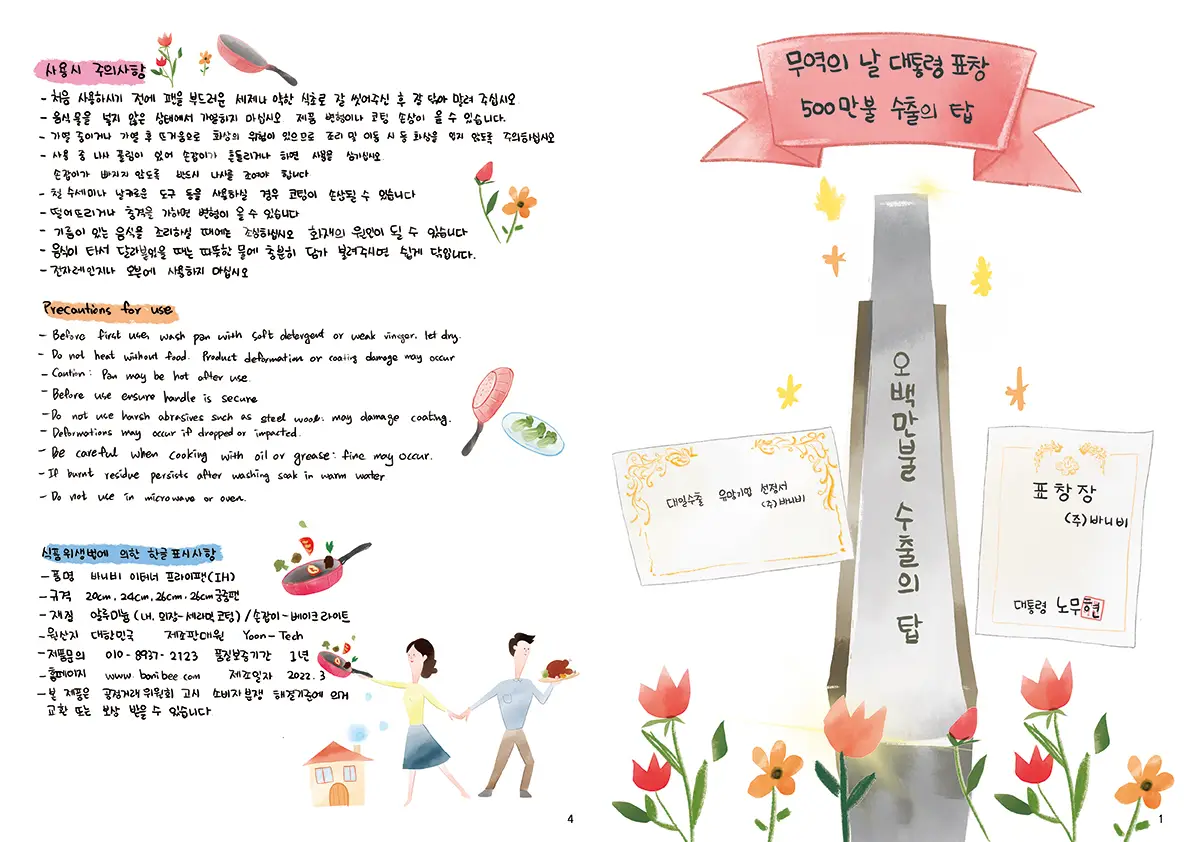 사용시 주의사항
- 처음 사용하시기 전에 팬을 부드러운 세제나 약한 식초로 잘 씻어주신 후 잘 닦아 말려 주십시오.
- 음식물을 넣지 않은 상태에서 가열하지 마십시오 제품 변형이나 코팅 손상이 올 수 있습니다.
- 가열 중이거나 가열 후 뜨거움으로 화상의 위험이 있으므로 조리 및 이동 시 등 화상을 입지 않도록 주의하십시오
- 사용 중 나사 풀림이 있어 손잡이가 흔들리거나 하면 사용을 삼가십시오
손잡이가 빠지지 않도록 반드시 나사를 조여야 합니다
- 철 수세미나 날카로운 도구 등을 사용하실 경우 코팅이 손상될 수 있습니다
- 떨어뜨리거나 충격을 가하면 변형이 올 수 있습니다
- 기름이 있는 음식을 조리하실 때에는 조심하십시오 화재의 원인이 될 수 있습니다
- 음식이 타서 달라붙었을 때는 따뜻한 물에 충분히 담가 불려주시면 쉽게 닦입니다.
- 전자레인지나 오븐에 사용하지 마십시오
Precautions for use
- Before first use, wash pan with soft detergent or weak vinegar. let dry.
- Do not heat without food. Product deformation or coating damage may occur
- Caution : Pan may be hot after use.
- Before use ensure handle is secure
- Do not use harsh abrasives such as steel wool: may damage coating.
- Deformations may occur if dropped or impacted.
- Be careful when cooking with oil or grease: fine may occur.
- If burnt residue persists after washing soak in warm water
- Do not use in microwave or oven.
식품위생법에 의한 한글표시사항
- 품명 바니비 이터너 프라이팬(IH)
- 규격 20cm, 24cm, 26cm, 26cm궁중팬
- 재질 알루미늄 (내, 외장-세라믹 코팅) / 손잡이 - 베이크 라이트
- 원산지 대한민국 제조판매원 Yoon-Tech
- 제품문의 010-8937-2123 품질보증기간 1년
- 홈페이지 www.banibee.com 제조일자 2022.3
- 본 제품은 공정거래 위원회 고시 소비자 분쟁 해결기준에 의거
교환 또는 보상 받을 수 있습니다
4
무역의 날 대통령 표창
500만불 수출의 탑
오백만불 수출의 탑
대일수출 유망기업 선정서
(주)바니비
표창장
(주)바니비
대통령 노무현
1